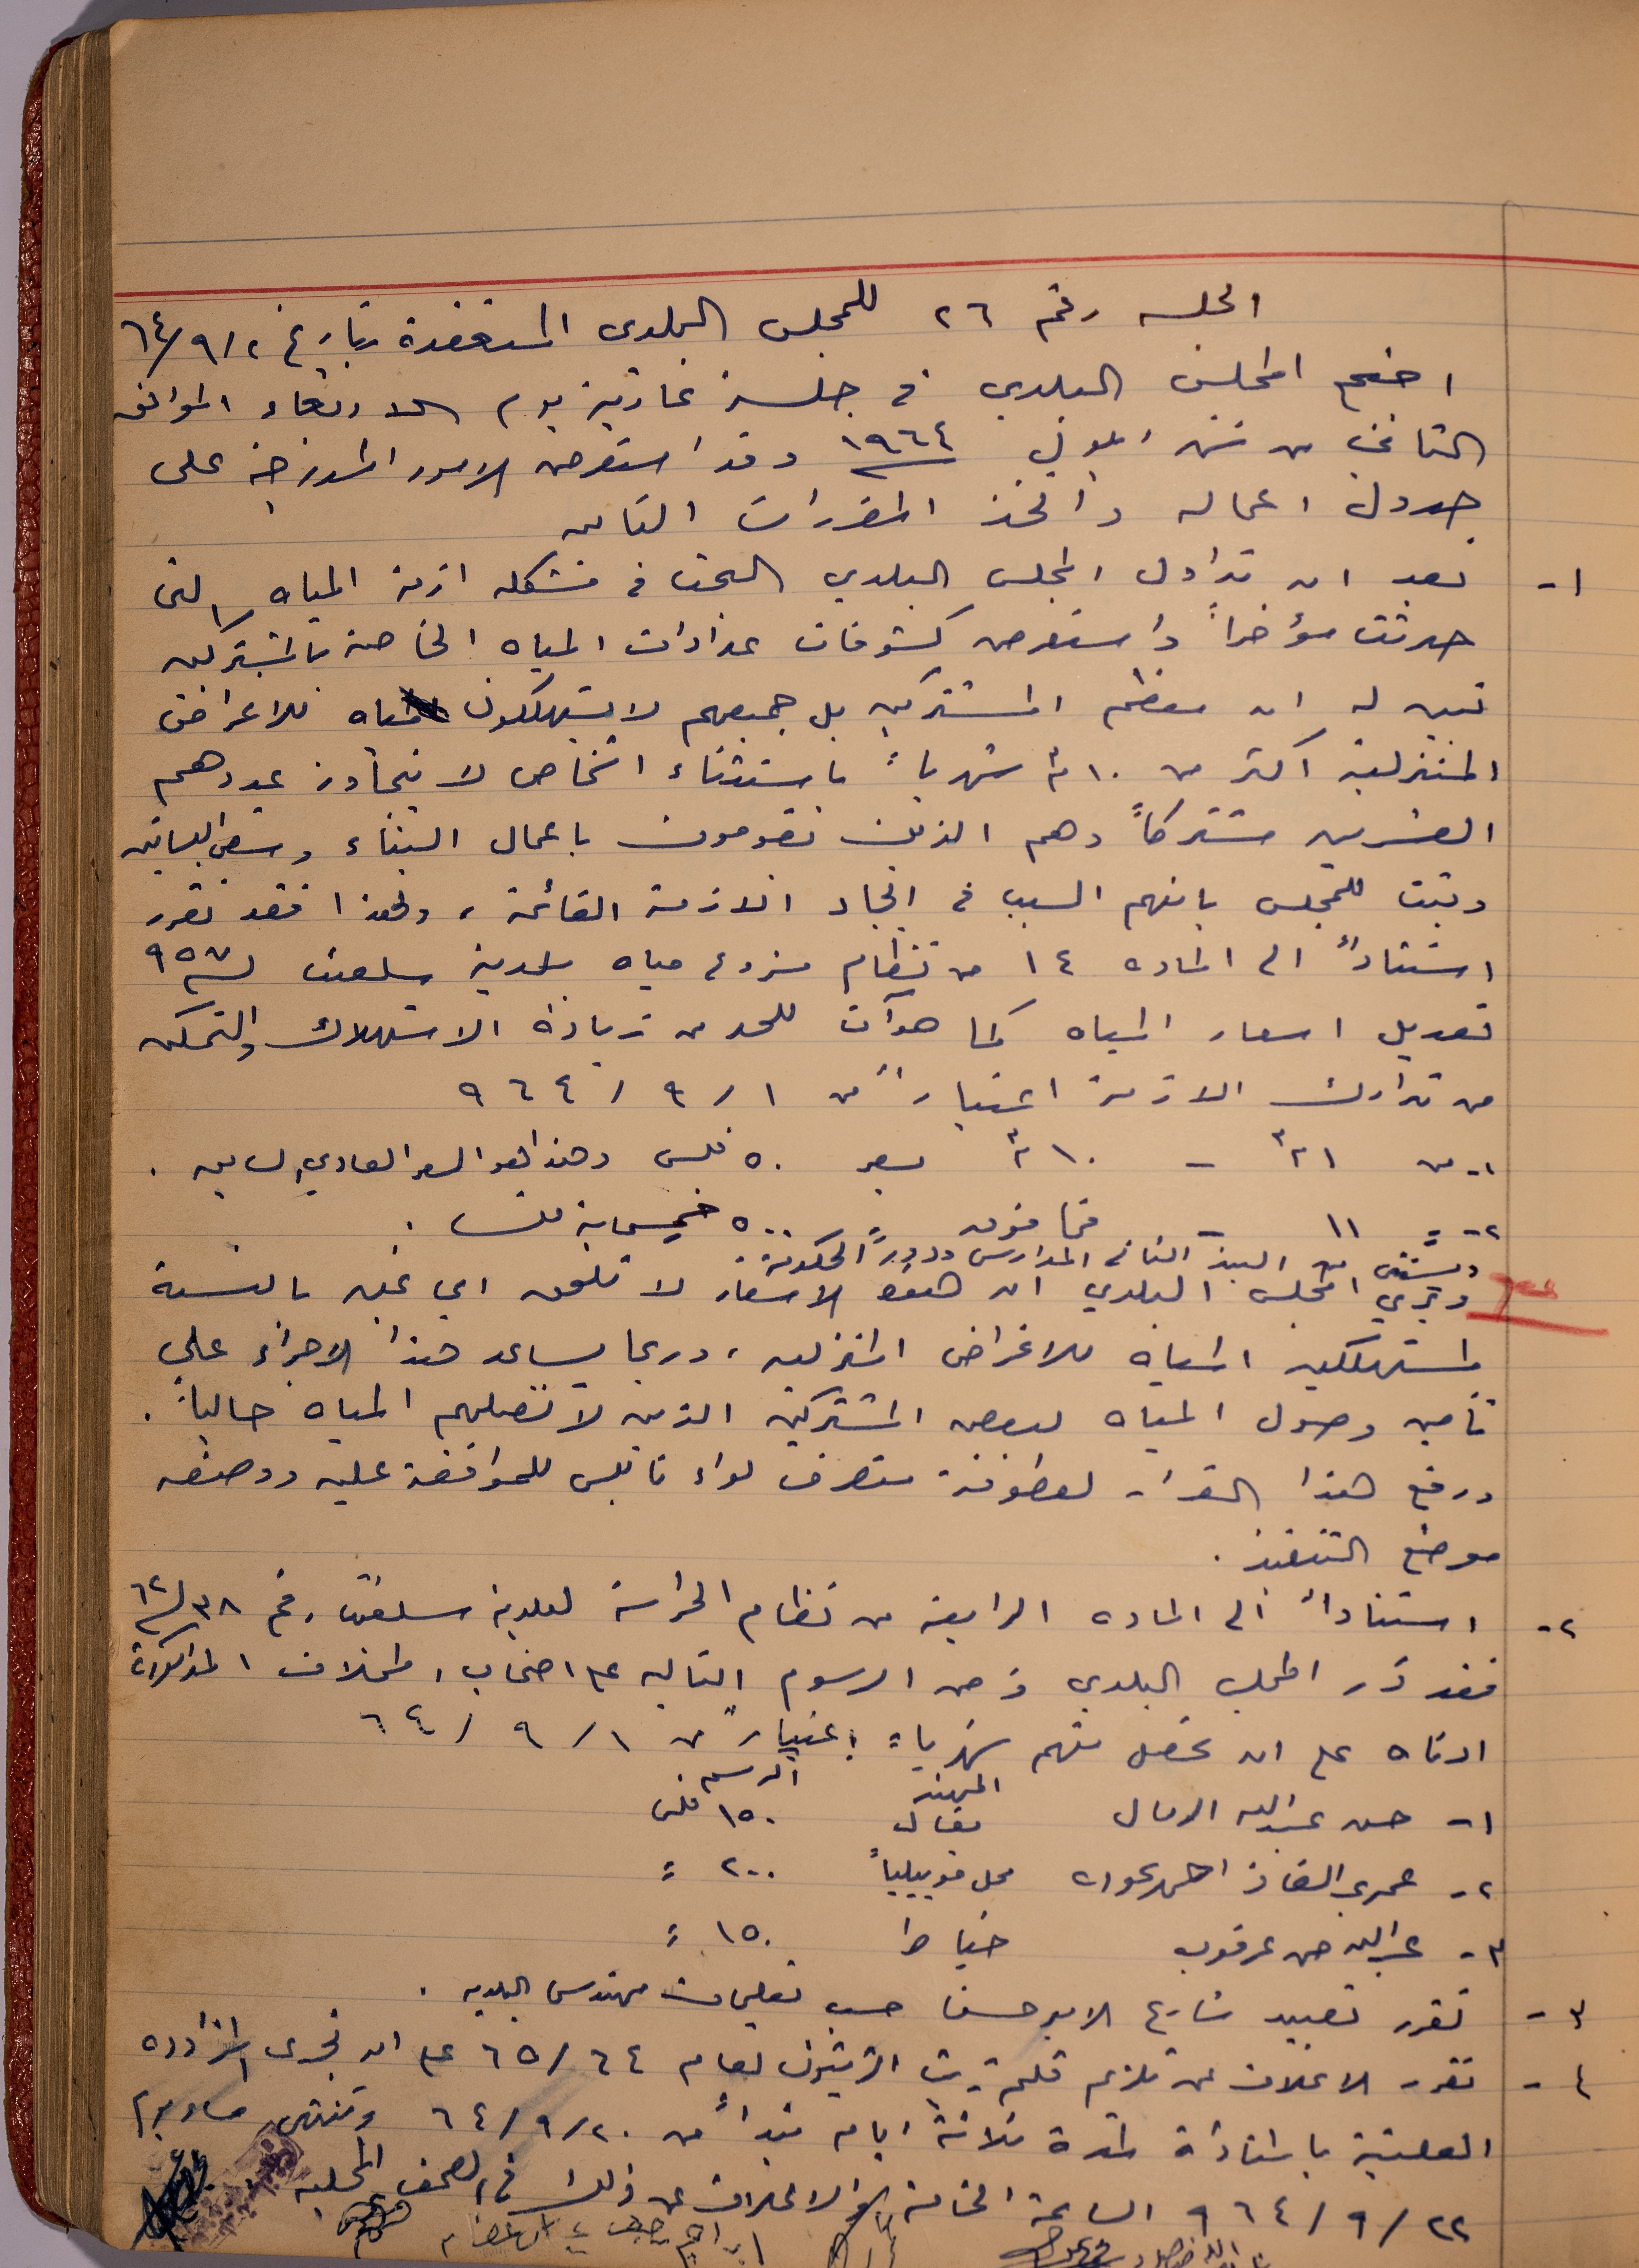 الجلسه رقم ٢٦ للمجلس البلدي المنعقدة بتاريخ ٦٤/٩/٢
اجتمع المجلس البلدي في جلسة عادية يوم الاربعاء الموافق
الثاني من شهر ايلول ١٩٦٤ وقد استعرض الامور المدرجة على
جدول اعماله واتخذ المقررات التاليه
١- بعد ان تداول المجلس البلدي البحث في مشكلة ازمة المياه التي
حدثت مؤخراً واستعرض كشوفات عدادات المياه الخاصة بالمشتركين
تبين له ان معظم المشتركين بل جميعهم لا يستهلكون مياه للاغراض
المنزلية اكثر من ١٠ م٣ شهرياً باستثناء اشخاص لا يتجاوز عددهم
العشرين مشتركاً وهم الذين يقومون باعمال البناء وسقي البساتين
وثبت للمجلس بانهم السبب في ايجاد الازمة القائمة ، ولهذا فقد تقرر
استناداً الى الماده ١٤ من نظام مشروع مياه بلدية سلفيت لسنة ٩٥٧
تعديل اسعار المياه كما هو آت للحد من زيادة الاستهلاك والتمكن
من تدارك الازمة اعتباراً من ١ / ٩ / ٩٦٤
١- من ١ م٣ - ١٠ م٣ بسعر ٥٠ فلس وهذا هو السعر العادي السابق .
٢- " ١١ - فما فوق " ٥٠٠ خمسماية فلس .
ويستثنى من البند الثاني المدارس ودور الحكومة .
ويرى المجلس البلدي ان هذه الاسعار لا تلحق اي غبن بالنسبة
لمستهلكين المياه للاغراض المنزليه ، وربما يساعد هذا الاجراء على
تأمين وصول المياه لبعض المشتركين الذين لا تصلهم المياه حالياً .
ورفع هذا القرار لعطوفة متصرف لواء نابلس للموافقة عليه ووضعه
موضع التنفيذ .
٢- استناداً الى الماده الرابعة من نظام الحراسة لبلدية سلفيت رقم ٣٨ لسنة ٦٢
فقد قرر المجلس البلدي فرض الرسوم التاليه على اصحاب المحلات المذكورة
ادناه على ان تحصل منهم شهرياً اعتباراً من ١ / ٩ / ٦٤
المهنة الرسم
١- حسن عبدالله الرمال بقال ١٥٠ فلس
٢- عمر محل موبيليا ٢٠٠ "
٣- عبدالله حسن عرقوب خياط ١٥٠ "
٣- تقرر تعبيد شارع الامير حسن حسب تعليمات مهندس البلديه .
٤- تقرر الاعلان عن تلزيم قلمية زيت الزيتون لعام ٦٥/٦٤ على ان تجرى المزاوده
العلنية لمدة ثلاثة ايام تبدأ من ٦٤/٩/٢٠ وتنتهي مساء يوم
٩٦٤/٩/٢٢ الساعة الخامسة والاعلان عن ذلك في الصحف المحليه